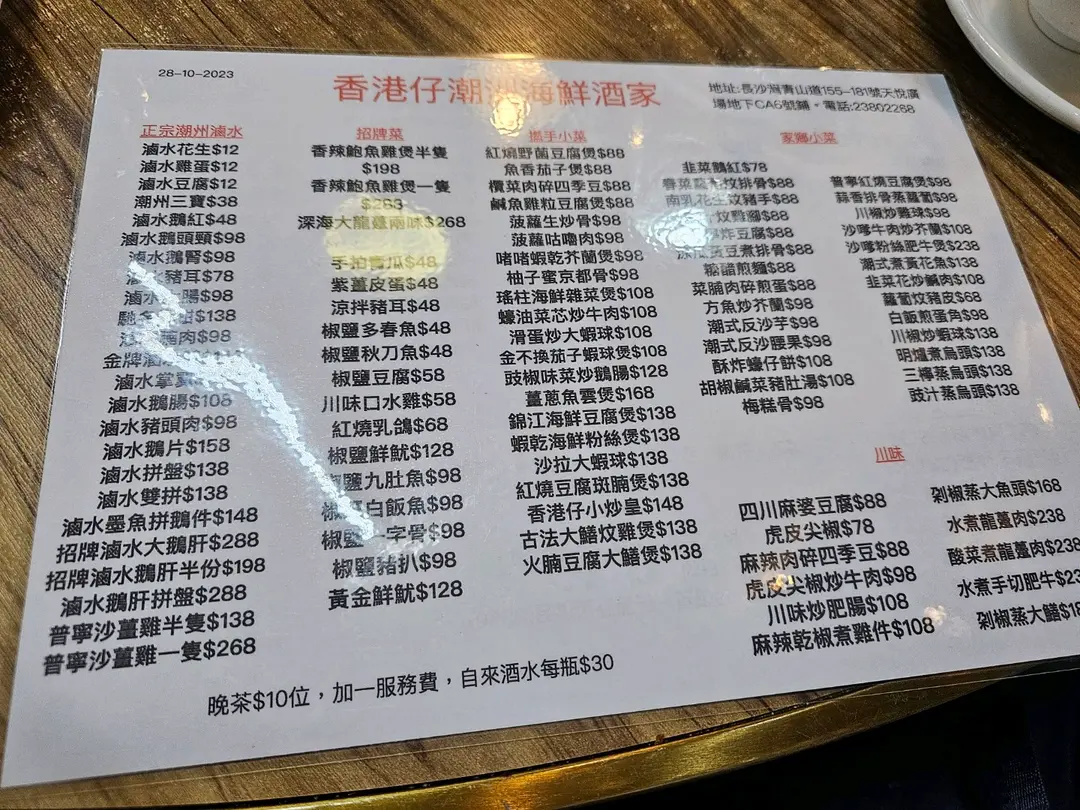 28-10-2023
香港仔潮洲海鮮酒家
地址:長沙灣青山道155-181號天悅廣
場地下CA6號鋪。電話:23802288
正宗潮州滷水
滷水花生$12
滷水雞蛋$12
滷水豆腐$12
潮州三寶$38
滷水鵝紅$48
滷水鵝頭頸$98
滷水鵝腎$98
滷水豬耳$78
滷水 腸$98
$138
肉$98
金牌滷水
滷水掌翼
滷水鵝腸$108
滷水豬頭肉$98
滷水鵝片$158
滷水拼盤$138
滷水雙拼$138
滷水墨魚拼鵝件$148
招牌滷水大鵝肝$288
招牌滷水鵝肝半份$198
滷水鵝肝拼盤$288
普寧沙薑雞半隻$138
普寧沙薑雞一隻$268
招牌菜
香辣鮑魚雞煲半隻
$198
香辣鮑魚雞煲一隻
$288
深海大龍躉兩味$268
手拍青瓜$48
紫薑皮蛋$48
涼拌豬耳$48
椒鹽多春魚$48
椒鹽秋刀魚$48
椒鹽豆腐$58
川味口水雞$58
紅燒乳鴿$68
椒鹽鮮魷$128
椒鹽九肚魚$98
椒鹽白飯魚$98
椒鹽一字骨$98
椒鹽豬扒$98
黃金鮮魷$128
攜手小菜
紅燒野菌豆腐煲$88
魚香茄子煲$88
欖菜肉碎四季豆$88
鹹魚雞粒豆腐煲$88
菠蘿生炒骨$98
菠蘿咕嚕肉$98
啫啫蝦乾芥蘭煲$98
柚子蜜京都骨$98
瑤柱海鮮雜菜煲$108
蠔油菜芯炒牛肉$108
滑蛋炒大蝦球$108
金不換茄子蝦球煲$108
豉椒味菜炒鵝腸$128
薑蔥魚雲煲$168
錦江海鮮豆腐煲$138
蝦乾海鮮粉絲煲$138
沙拉大蝦球$138
紅燒豆腐斑腩煲$138
香港仔小炒皇$148
古法大鱔炆雞煲$138
火腩豆腐大鱔煲$138
家鄉小菜
韭菜鵝紅$78
春菜 炆排骨$88
南乳花生炆豬手$88
炆雞腳$88
炸豆腐$88
黃豆煮排骨$88
糖醋煎麵$88
菜脯肉碎煎蛋$88
方魚炒芥蘭$98
潮式反沙芋$98
潮式反沙腰果$98
酥炸蠔仔餅$108
胡椒鹹菜豬肚湯$108
梅糕骨$98
普寧紅燒豆腐煲$98
蒜香排骨蒸蘿蔔$98
川椒炒雞球$98
沙嗲牛肉炒芥蘭$108
沙嗲粉絲肥牛煲$238
潮式煮黃花魚$138
韭菜花炒鹹肉$108
蘿蔔炆豬皮$68
白飯煎蛋角$98
川椒炒蝦球$138
明爐煮烏頭$138
三檸蒸烏頭$138
豉汁蒸烏頭$138
川味
四川麻婆豆腐$88
虎皮尖椒$78
麻辣肉碎四季豆$88
虎皮尖椒炒牛肉$98
川味炒肥腸$108
麻辣乾椒煮雞件$108
剁椒蒸大魚頭$168
水煮龍躉肉$238
酸菜煮龍躉肉$238
水煮手切肥牛$23
剁椒蒸大鱔$1
晚茶$10位，加一服務費，自來酒水每瓶$30